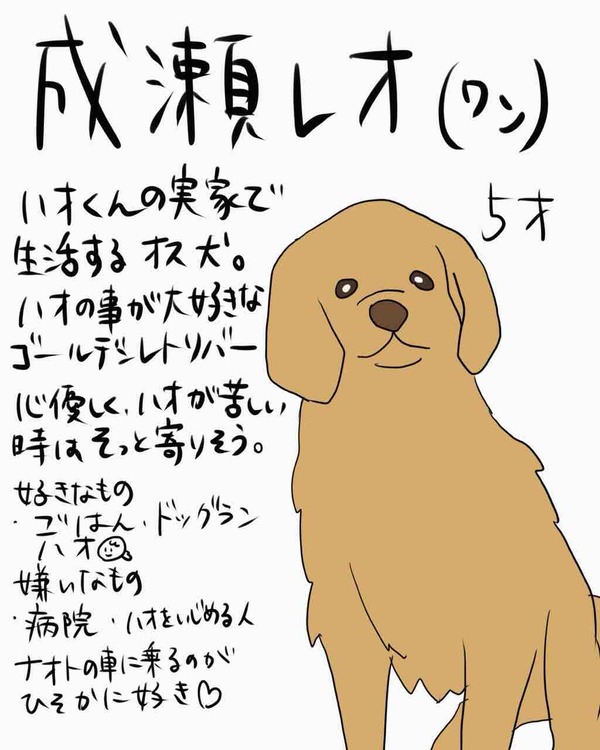 成瀬レオ(ワン)
5才
ハオくんの実家で
生活するオス犬。
ハオの事が大好きな
ゴールデンレトリバー
心優しく、ハオが苦しい
時はそっと寄りそう。
好きなもの
・ごはん・ドッグラン
ハオ
嫌いなもの
・病院・ハオをいじめる人
ナオトの車に乗るのが
ひそかに好き♡